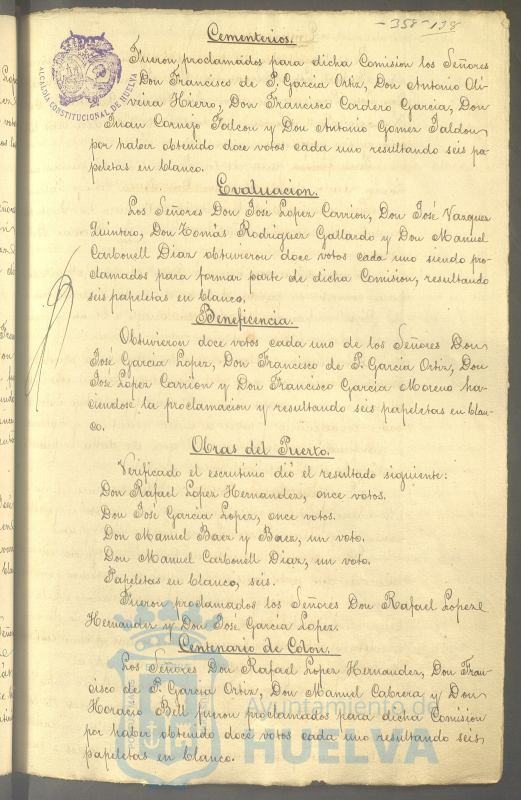 -358-138
Cementerios.
Fueron, proclamados para dicha Comision los Señores
Don Francisco de P. Garcia Ortiz, Don Antonio Oli
veira Hierro, Don Francisco Cordero Garcia, Don
Juan Cornejo Falcon y Don Antonio Gomez Jaldon
por haber obtenido doce votos cada uno resultando seis pa-
peletas en blanco.
Evaluacion.
Los Señores Don José Lopez Carrion, Don José Vazquez
Quintero, Don Tomás Rodriguez Gallardo y Don Manuel
Carbonell Diaz obtuvieron doce votos cada uno siendo pro-
clamados para formar parte de dicha Comision, resultando
seis papeletas en blanco.
Beneficencia.
Obtuvieron doce votos cada uno de los Señores Don
José Garcia Lopez, Don Francisco de P. Garcia Ortiz, Don
José Lopez Carrion y Don Francisco Garcia Moreno ha-
ciendose la proclamacion y resultando seis papeletas en blan-
co.
Obras del Puerto.
Verificado el escrutinio dió el resultado siguiente:
Don Rafael Lopez Hernandez, once votos.
Don José Garcia Lopez, once votos.
Don Manuel Baez y Baez, un voto.
Don Manuel Carbonell Diaz, un voto.
Papeletas en blanco, seis.
Fueron, proclamados los Señores Don Rafael Lopez
Hernandez y Don José Garcia Lopez.
Centenario de Colon.
Los Señores Don Rafael Lopez Hernandez, Don Fran-
cisco de P. Garcia Ortiz, Don Manuel Cabrera y Don
Horacio Bell fueron proclamados para dicha Comision
por haber obtenido doce votos cada uno resultando seis
papeletas en blanco.
ALCALDIA CONSTITUCIONAL DE HUELVA
Ayuntamiento de
HUELVA